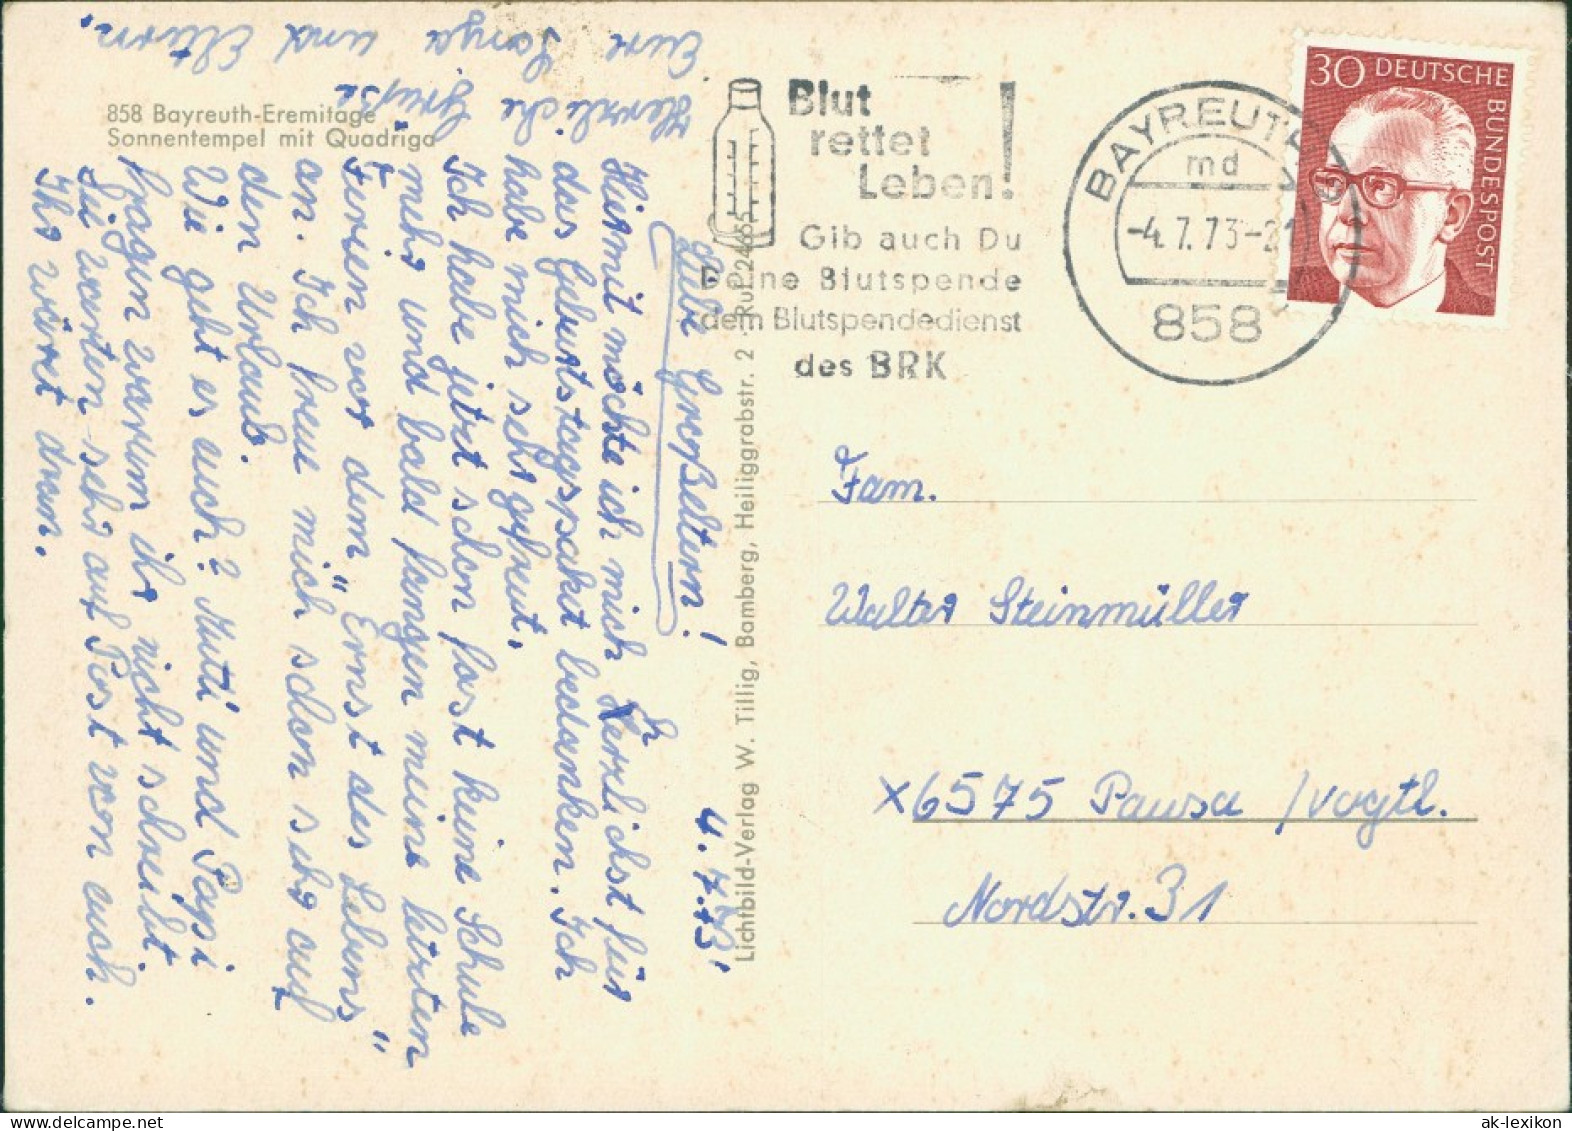 858 Bayreuth-Eremitage
Sonnentempel mit Quadriga
4. 7. 73
Liebe Großeltern!
Hiermit möchte ich mich herrlichst für
das Geburtstagspaket bedanken. Ich
habe mich sehr gefreut.
Ich habe jetzt schon fast keine Schule
mehr und bald fangen meine letzten
Ferien vor dem „Ernst des Lebens"
an. Ich freue mich schon sehr auf
den Urlaub.
Wie geht es euch? Mutti und Papi
fragen warum ihr nicht schreibt.
Sie warten sehr auf Post von euch.
Ihr wäret dran.
Herzliche Grüße
Eure Sonja und Eltern.
Lichtbild-Verlag W. Tillig, Bamberg, Heiliggrabstr. 2 · Ruf 24655
Blut
rettet
Leben!
Gib auch Du
Deine Blutspende
dem Blutspendedienst
des BRK
BAYREUTH 1
md
-4.7.73-21
858
30 DEUTSCHE
BUNDESPOST
Fam.
Walter Steinmüller
X6575 Pausa /Vogtl.
Nordstr. 31
ak-lexikon